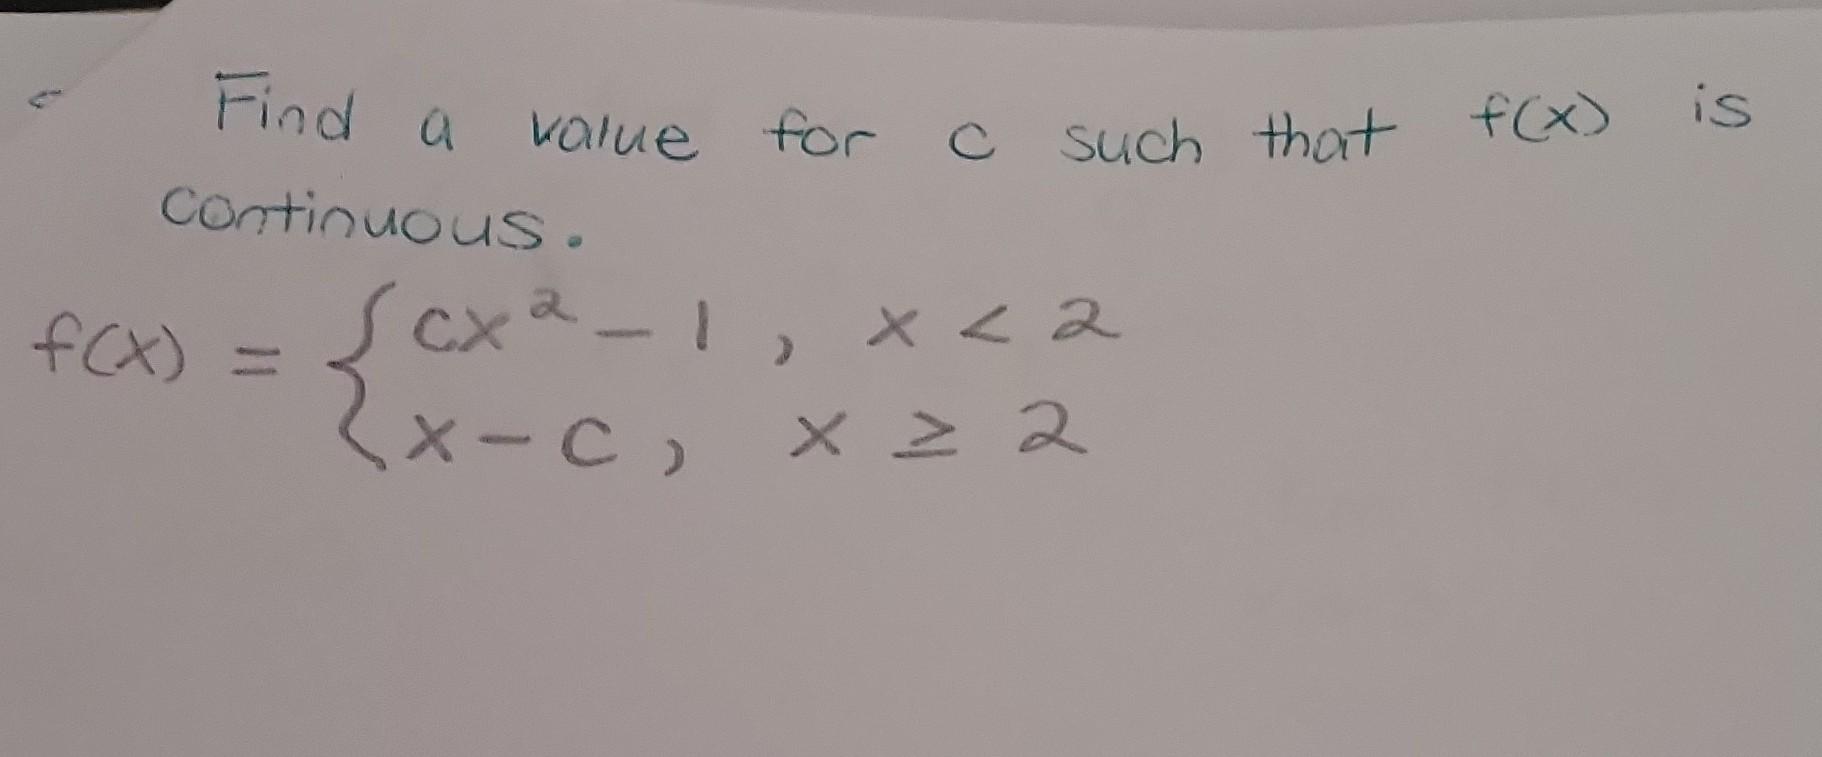 Find a value for c such that f(x) is
continuous.
f(x) = { cx² - 1, x < 2
x - c, x ≥ 2